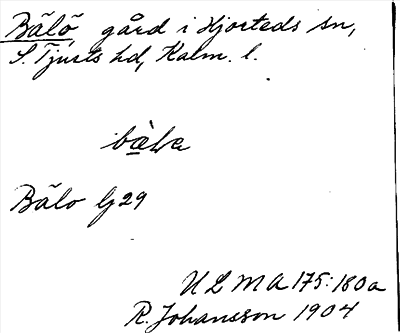 Bålö, gård i Hjorteds sn,
S. Tjusts hd, Kalm. l.
Bålo G 29
U L M A 175:180a
R. Johansson 1904